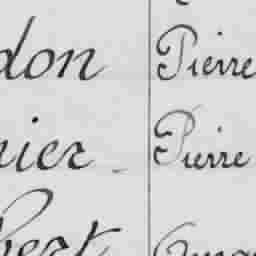 don Pierre
nier Pierre
bert